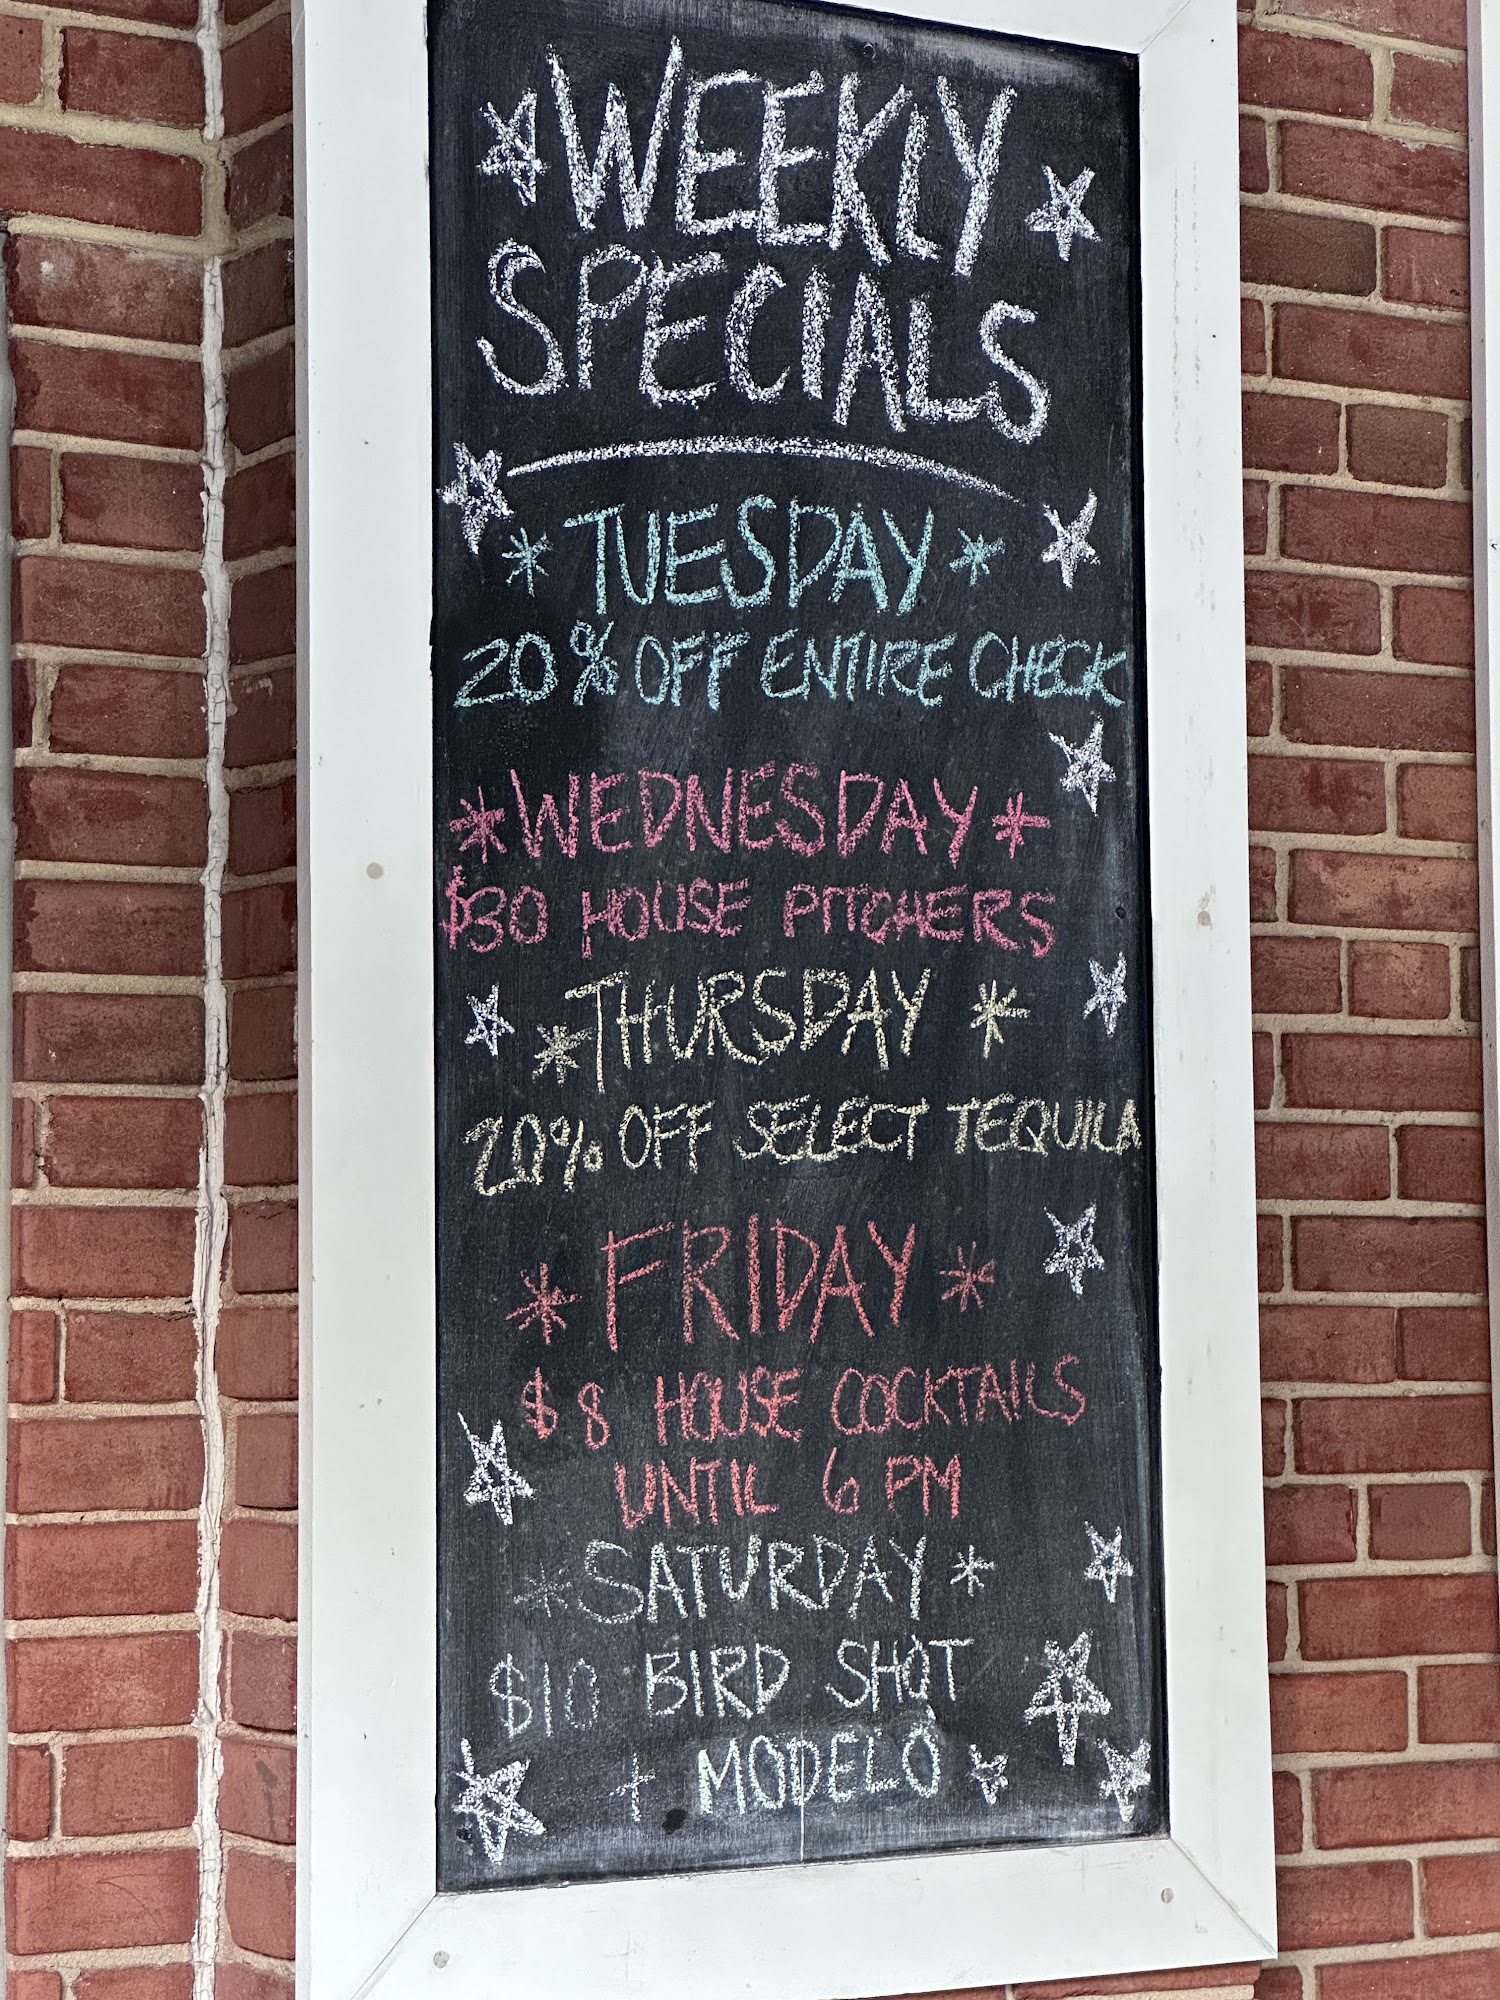 WEEKLY
SPECIALS
*TUESDAY*
20% OFF ENTIRE CHECK
*WEDNESDAY*
$30 HOUSE PITCHERS
*THURSDAY*
20% OFF SELECT TEQUILA
*FRIDAY*
$8 HOUSE COCKTAILS
UNTIL 6 PM
*SATURDAY*
$10 BIRD SHOT
+ MODELO